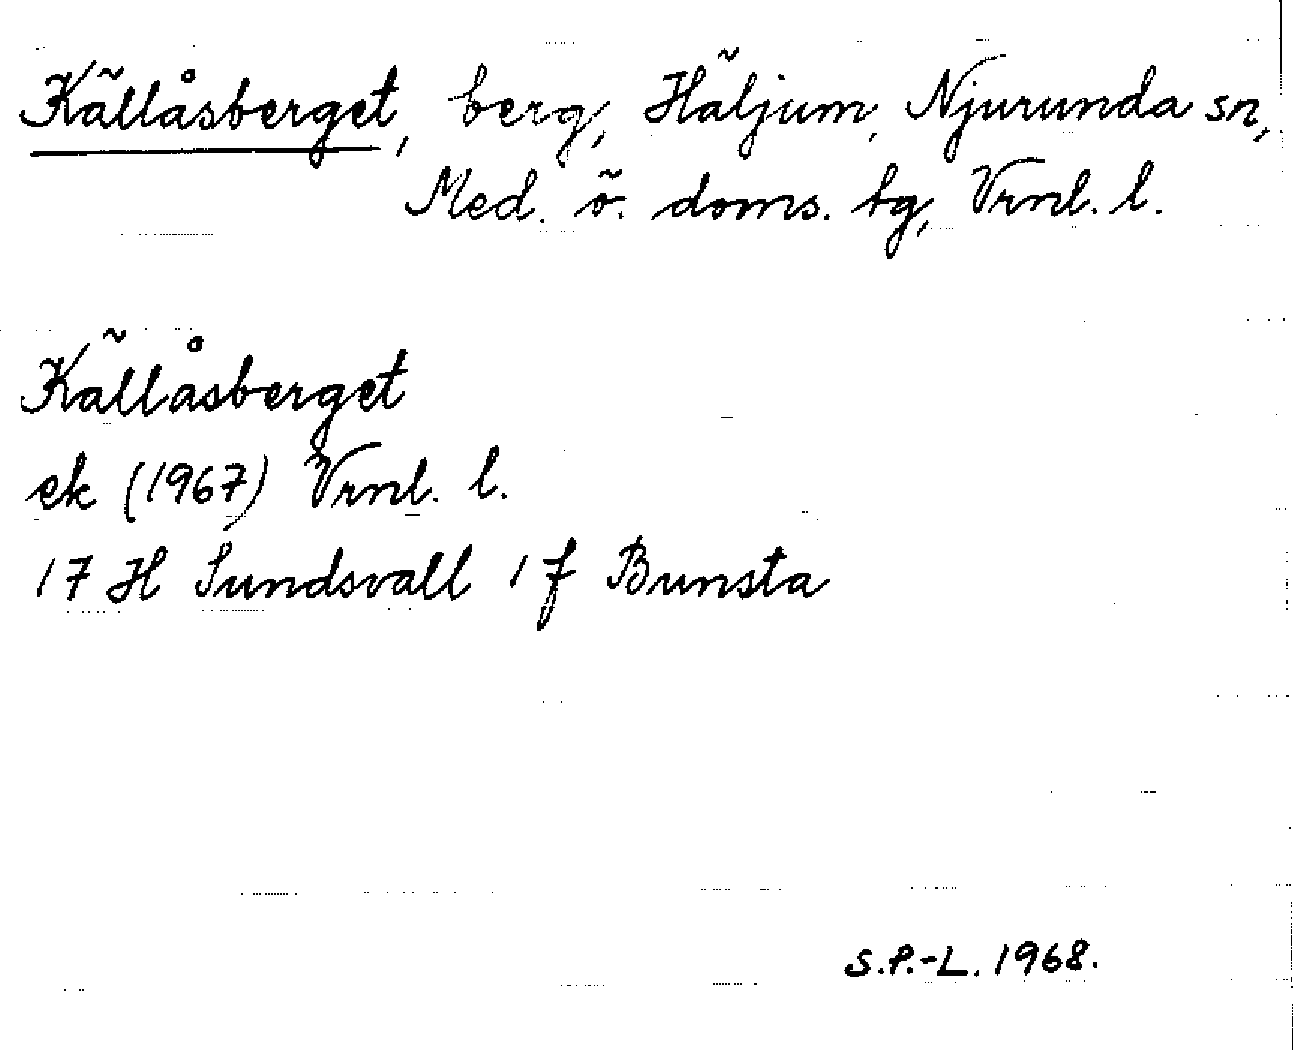 Källåsberget, berg, Häljum, Njurunda sn,
Med. ö. doms. tg, Vrnl. l.
Källåsberget
ek (1967) Vrnl. l.
17 H Sundsvall 1 f Bunsta
S.P.-L. 1968.